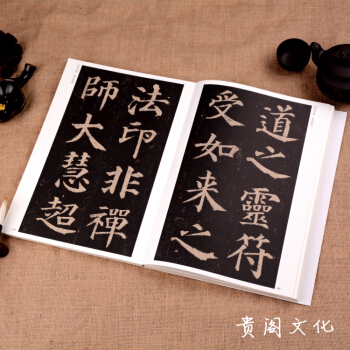 道之靈符
受如来之
法印非禪
師大慧超
贵阁文化